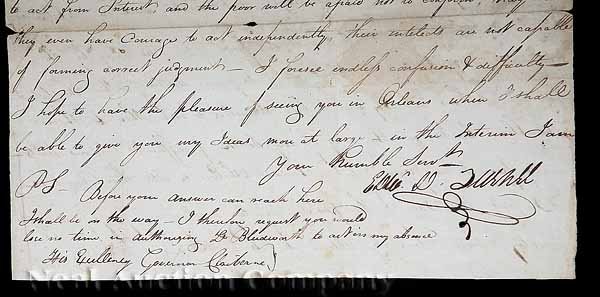 to act from Interest and the poor will be afraid not to conform, may
they even have Courage to act independently, their intelects are not capable
of forming correct judgment — I foresee endless confusion & difficulty —
I hope to have the pleasure of seeing you in Orleans when I shall
be able to give you my Ideas more at large — in the Interim I am
Your Humble Servt
Edwd D. Turner
PS — Before your answer can reach here
I shall be on the way — I therefore request you would
lose no time in authorizing Dr Bludworth to act in my absence
His Excellency Governor Claiborne
Neal Auction Company